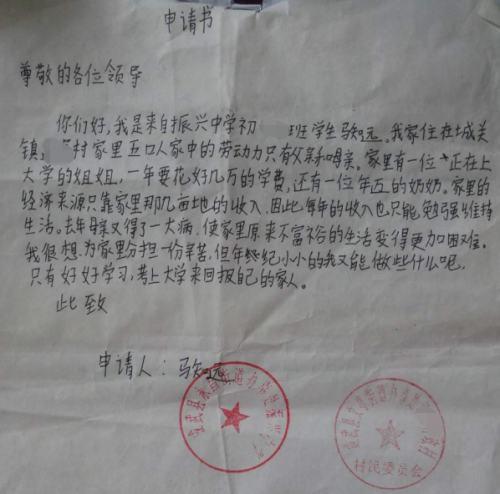 申请书
尊敬的各位领导
你们好,我是来自振兴中学初 班学生骆知远。我家住在城关
镇, 村家里五口人家中的劳动力只有父亲和母亲。家里有一位正在上
大学的姐姐,一年要花好几万的学费,还有一位年迈的奶奶。家里的
经济来源只靠家里那几亩地的收入,因此每年的收入也只能勉强维持
生活。去年母亲又得了一大病,使家里原来不富裕的生活变得更加困难。
我很想为家里分担一份辛苦,但年纪小小的我又能做些什么呢,
只有好好学习,考上大学来回报自己的家人。
此致
申请人:骆知远
村民委员会